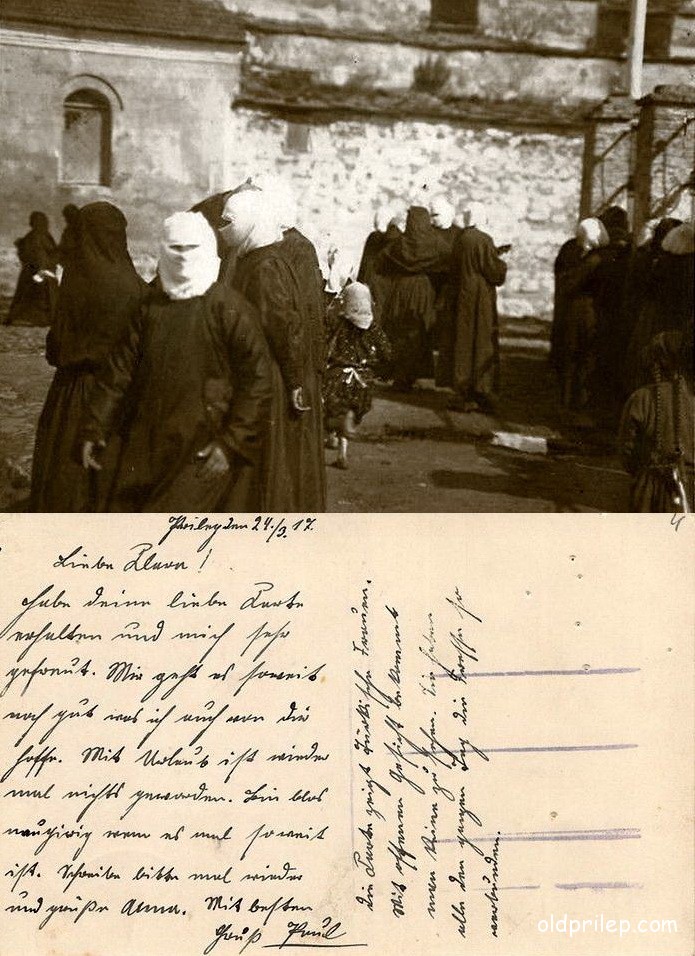 Prilep den 24./3. 17.
Liebe Klara!
Habe deine liebe Karte
erhalten und mich sehr
gefreut. Mir geht es soweit
noch gut was ich auch von dir
hoffe. Mit Urlaub ist wieder
mal nichts geworden. Bin blos
neugirig wenn es mal soweit
ist. Schreibe bitte mal wieder
und grüße Anna. Mit besten
Gruß Paul
Die Karte zeigt Türkische Frauen.
Mit offenen Gesicht bekommt
man keine zu sehen. Die haben
alle den ganzen Tag die Fresse so
verbunden.
oldprilep.com